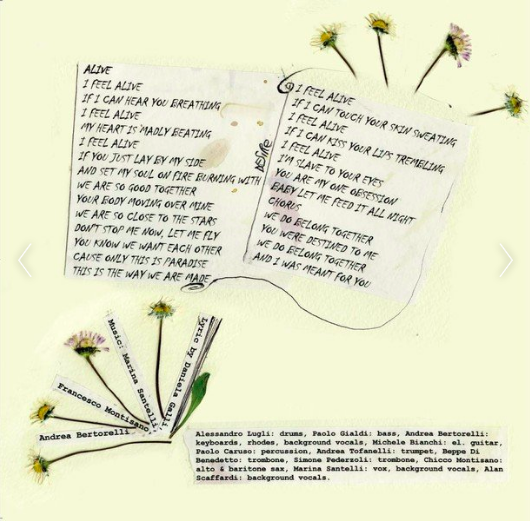 ALIVE
I FEEL ALIVE
IF I CAN HEAR YOU BREATHING
I FEEL ALIVE
MY HEART IS MADLY BEATING
I FEEL ALIVE
IF YOU JUST LAY BY MY SIDE
AND SET MY SOUL ON FIRE BURNING WITH DESIRE
WE ARE SO GOOD TOGETHER
YOUR BODY MOVING OVER MINE
WE ARE SO CLOSE TO THE STARS
DON'T STOP ME NOW, LET ME FLY
YOU KNOW WE WANT EACH OTHER
CAUSE ONLY THIS IS PARADISE
THIS IS THE WAY WE ARE MADE
I FEEL ALIVE
IF I CAN TOUCH YOUR SKIN SWEATING
I FEEL ALIVE
IF I CAN KISS YOUR LIPS TREMBLING
I FEEL ALIVE
I'M SLAVE TO YOUR EYES
YOU ARE MY ONE OBSESSION
BABY LET ME FEED IT ALL NIGHT
CHORUS
WE DO BELONG TOGETHER
YOU WERE DESTINED TO ME
WE DO BELONG TOGETHER
AND I WAS MEANT FOR YOU
Lyric by Daniela Galli
Music: Marina Santelli
Francesco Montisano
Andrea Bertorelli
Alessandro Lugli: drums, Paolo Gialdi: bass, Andrea Bertorelli:
keyboards, rhodes, background vocals, Michele Bianchi: el. guitar,
Paolo Caruso: percussion, Andrea Tofanelli: trumpet, Beppe Di
Benedetto: trombone, Simone Pederzoli: trombone, Chicco Montisano:
alto & baritone sax, Marina Santelli: vox, background vocals, Alan
Scaffardi: background vocals.